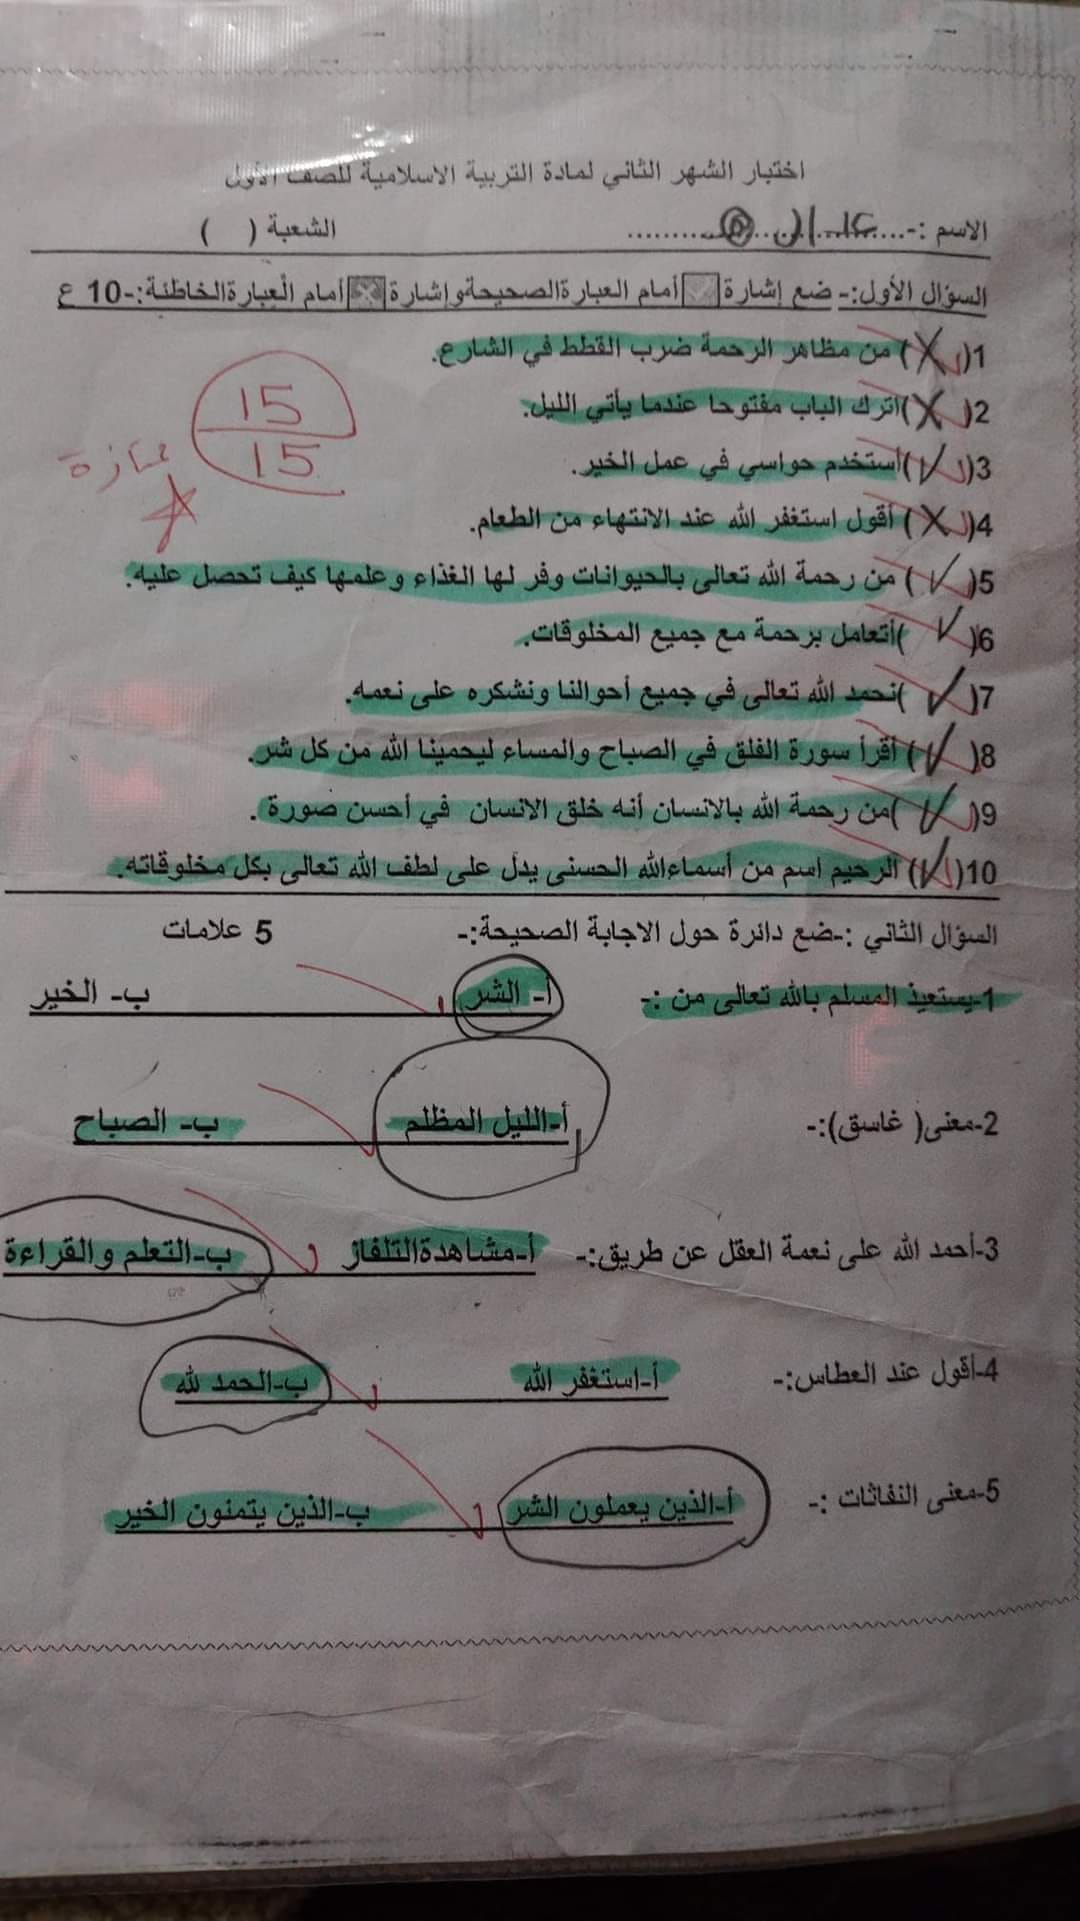 اختبار الشهر الثاني لمادة التربية الاسلامية للصف الأول
الاسم :-.................. الشعبة ( )
السؤال الأول:- ضع إشارة ✓ أمام العبارةالصحيحةوإشارة ✗ أمام العبارةالخاطئة:-10 ع
1(X) من مظاهر الرحمة ضرب القطط في الشارع.
2(X)اترك الباب مفتوحا عندما يأتي الليل.
3(✓)أستخدم حواسي في عمل الخير.
4(X) أقول استغفر الله عند الانتهاء من الطعام.
5(✓) من رحمة الله تعالى بالحيوانات وفر لها الغذاء وعلمها كيف تحصل عليه.
6(✓)أتعامل برحمة مع جميع المخلوقات.
7(✓)نحمد الله تعالى في جميع أحوالنا ونشكره على نعمه.
8(✓) أقرأ سورة الفلق في الصباح والمساء ليحمينا الله من كل شر.
9(✓)من رحمة الله بالانسان أنه خلق الانسان في أحسن صورة .
10(✓) الرحيم اسم من أسماءالله الحسنى يدل على لطف الله تعالى بكل مخلوقاته.
15
15
ممتازة
السؤال الثاني :-ضع دائرة حول الاجابة الصحيحة:- 5 علامات
1-يستعيذ المسلم بالله تعالى من :- أ- الشر ب- الخير
2-معنى( غاسق):- أ-الليل المظلم ب- الصباح
3-أحمد الله على نعمة العقل عن طريق:- أ-مشاهدةالتلفاز ب-التعلم والقراءة
4-أقول عند العطاس:- أ-استغفر الله ب-الحمد لله
5-معنى النفاثات :- أ-الذين يعملون الشر ب-الذين يتمنون الخير